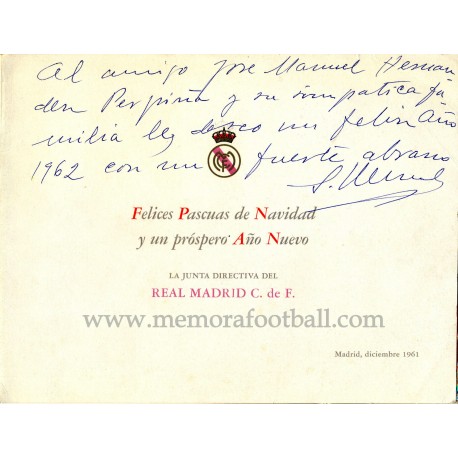 Al amigo José Manuel Hernan
dez Perpiña y su simpatica fa
milia les deseo un feliz Año
1962 con un fuerte abrazo
Felices Pascuas de Navidad
y un próspero Año Nuevo
LA JUNTA DIRECTIVA DEL
REAL MADRID C. de F.
www.memorafootball.com
Madrid, diciembre 1961